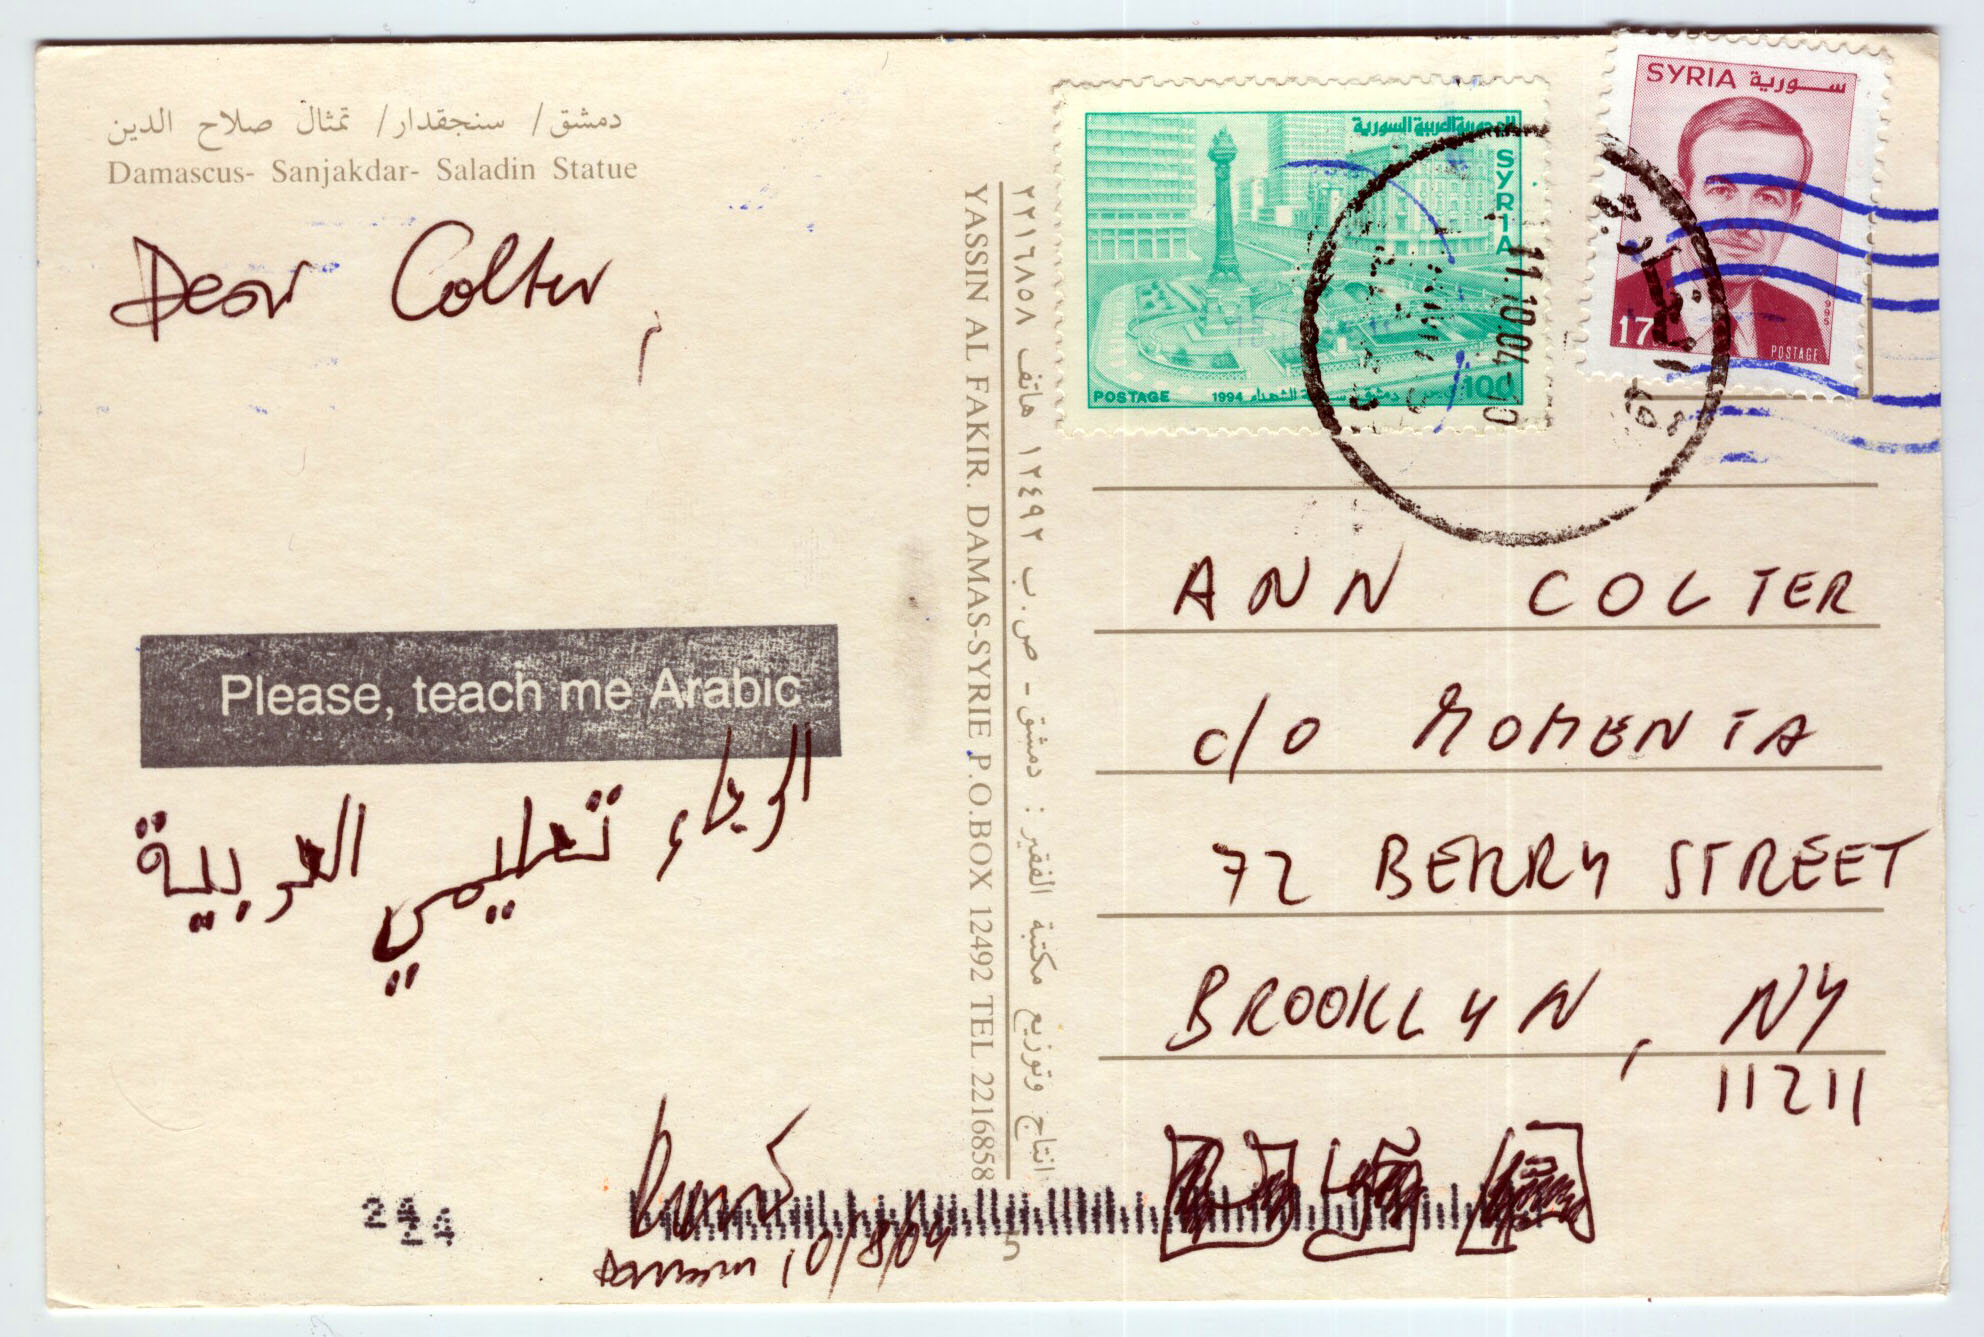 دمشق/ سنجقدار/ تمثال صلاح الدين
Damascus- Sanjakdar- Saladin Statue
Dear Colter,
Please, teach me Arabic
الرجاء تعليمي العربية
10/8/04
24
24
YASSIN AL FAKIR. DAMAS-SYRIE P.O.BOX 12492 TEL 2216858
انتاج وتوزيع مكتبة الفقير : دمشق - ص.ب ١٢٤٩٢ هاتف ٢٢١٦٨٥٨
الجمهورية العربية السورية
SYRIA
POSTAGE 1994 100
SYRIA سورية
17
1995
POSTAGE
11.10.04-10
ANN COLTER
c/o MOMENTA
72 BERRY STREET
BROOKLYN, NY
11211